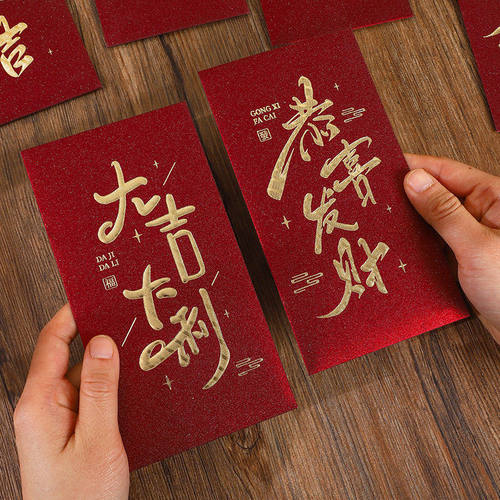 吉
大吉
大利
DA JI
DA LI
福
GONG XI
FA CAI
恭
喜
发
财